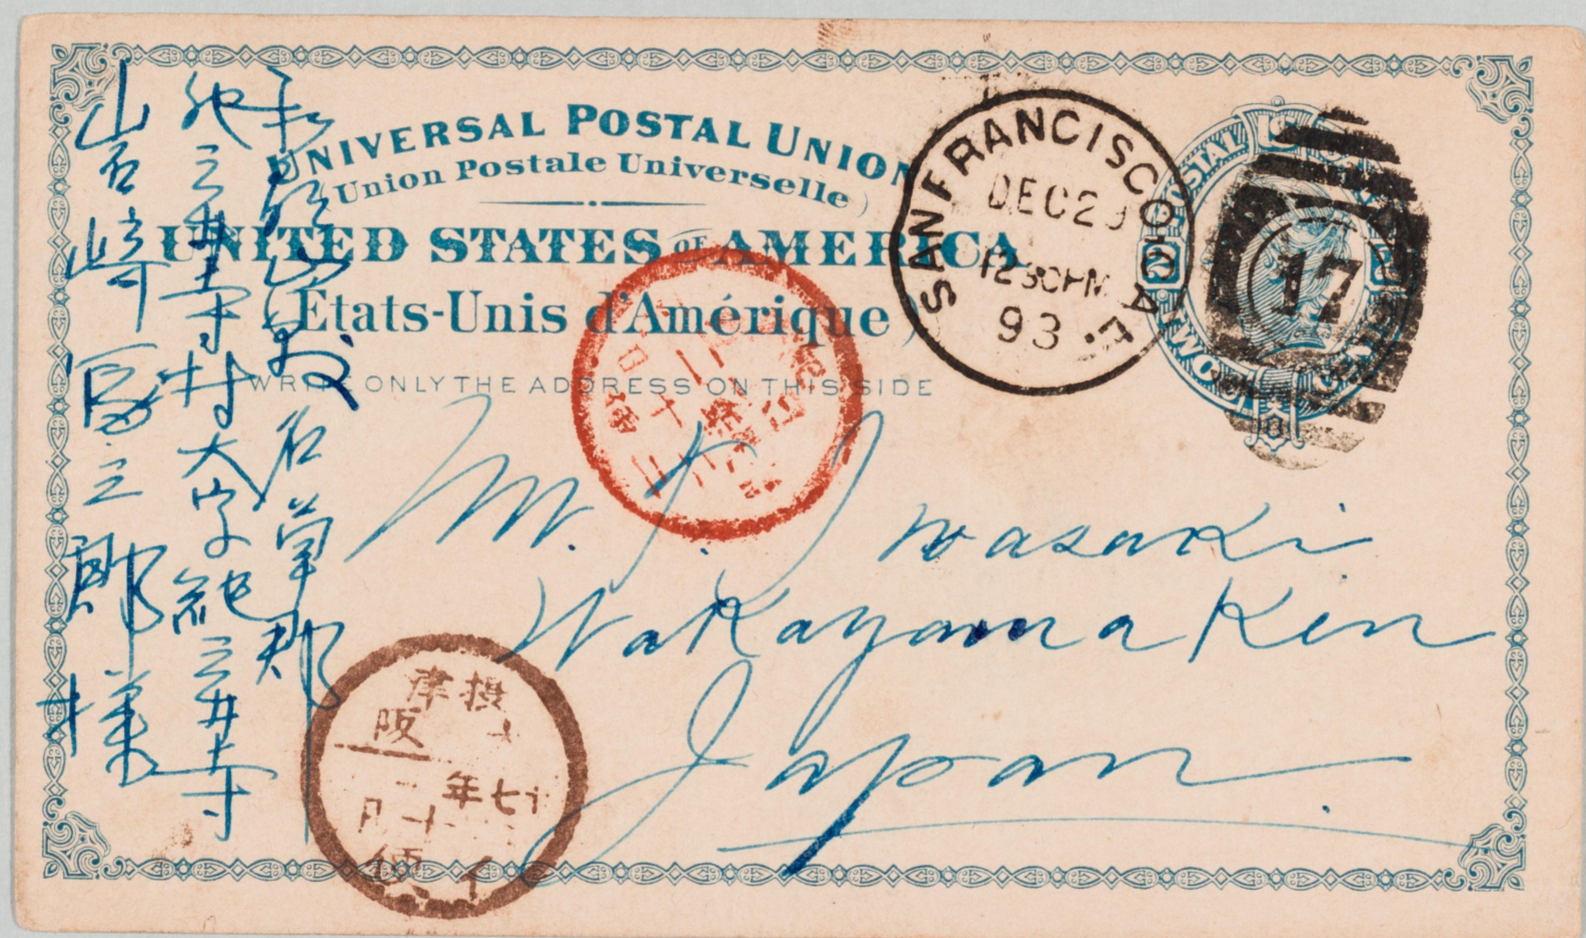 UNIVERSAL POSTAL UNION
(Union Postale Universelle)
UNITED STATES OF AMERICA
(États-Unis d'Amérique)
WRITE ONLY THE ADDRESS ON THIS SIDE
SAN FRANCISCO CAL.
DEC 29
12 30 PM
93
17
POSTAL
TWO
Mr. T. Iwasaki
Wakayama Ken
Japan.
和歌山縣 名草郡
紀三井寺村大字紀三井寺
岩崎富三郎様
摂津
大阪
廿七年
一月
便